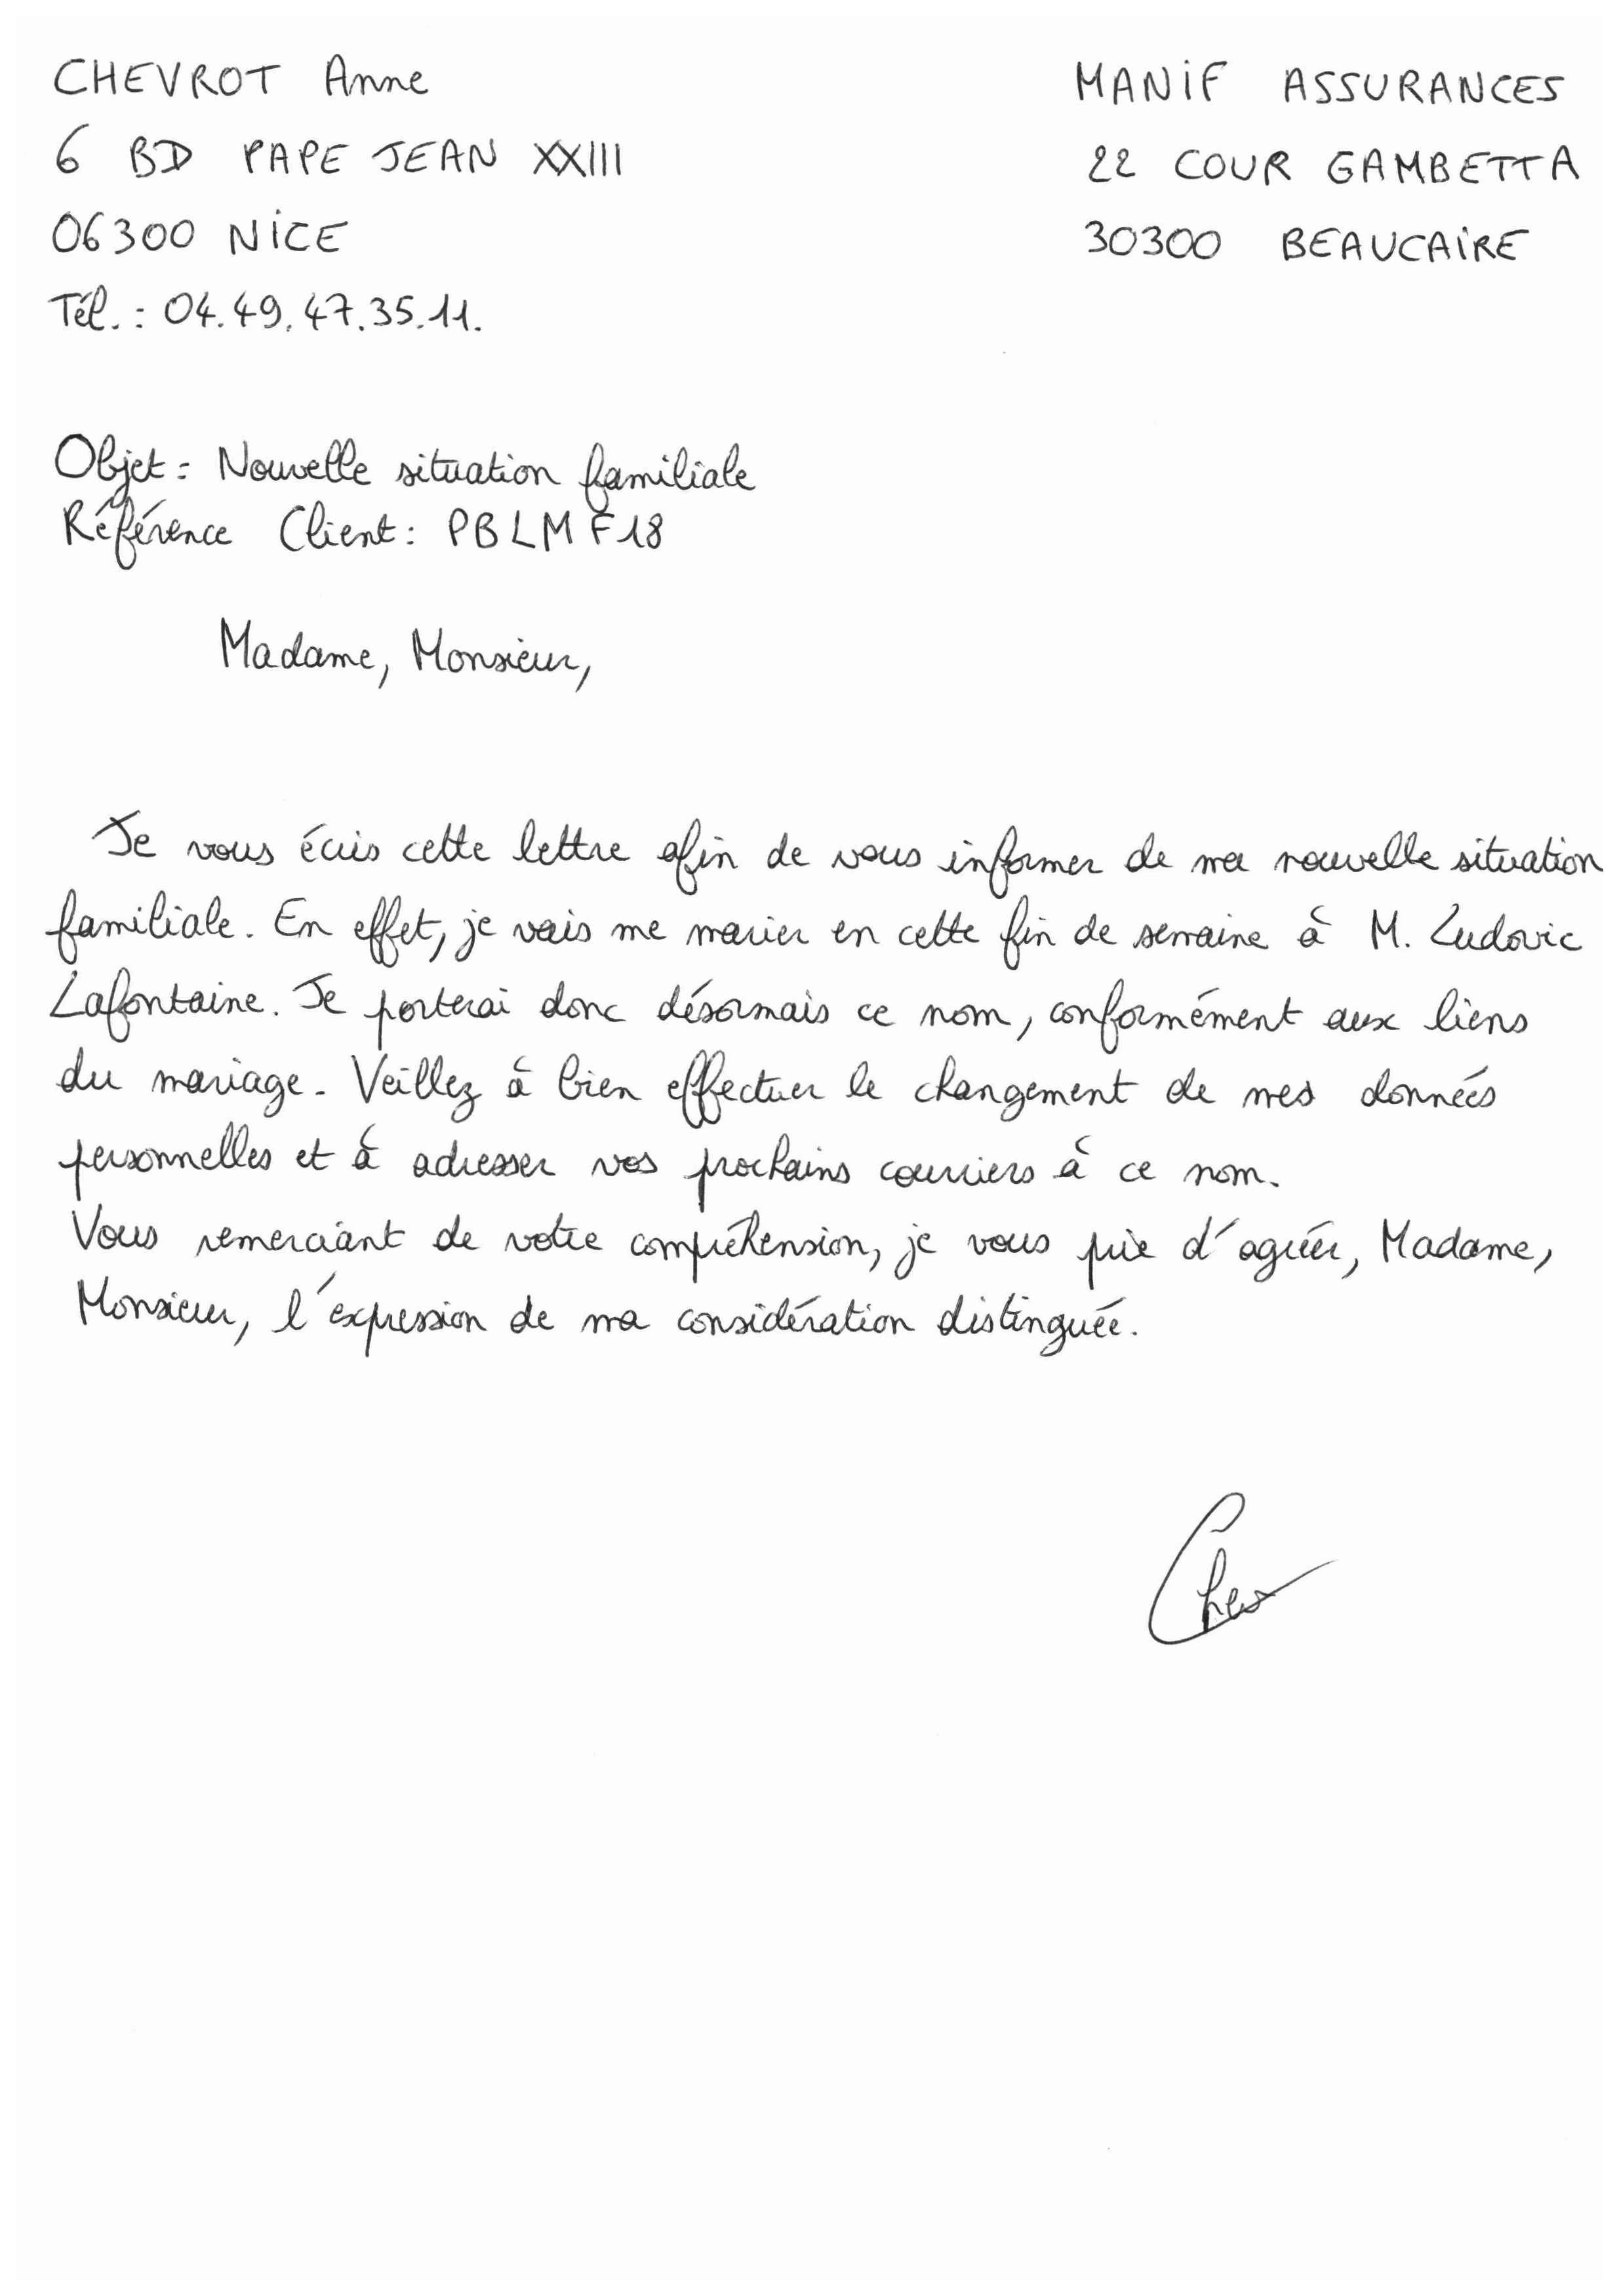 CHEVROT Anne
6 BD PAPE JEAN XXIII
06300 NiCE
Tél. : 04.49.47.35.11.
MANiF ASSURANCES
22 COUR GAMBETTA
30300 BEAUCAiRE
Objet : Nouvelle situation familiale
Référence Client : PBLMF18
Madame, Monsieur,
Je vous écris cette lettre afin de vous informer de ma nouvelle situation
familiale. En effet, je vais me marier en cette fin de semaine à M. Ludovic
Lafontaine. Je porterai donc désormais ce nom, conformément aux liens
du mariage. Veillez à bien effectuer le changement de mes données
personnelles et à adresser vos prochains courriers à ce nom.
Vous remerciant de votre compréhension, je vous prie d'agréer, Madame,
Monsieur, l'expression de ma considération distinguée.
Chev